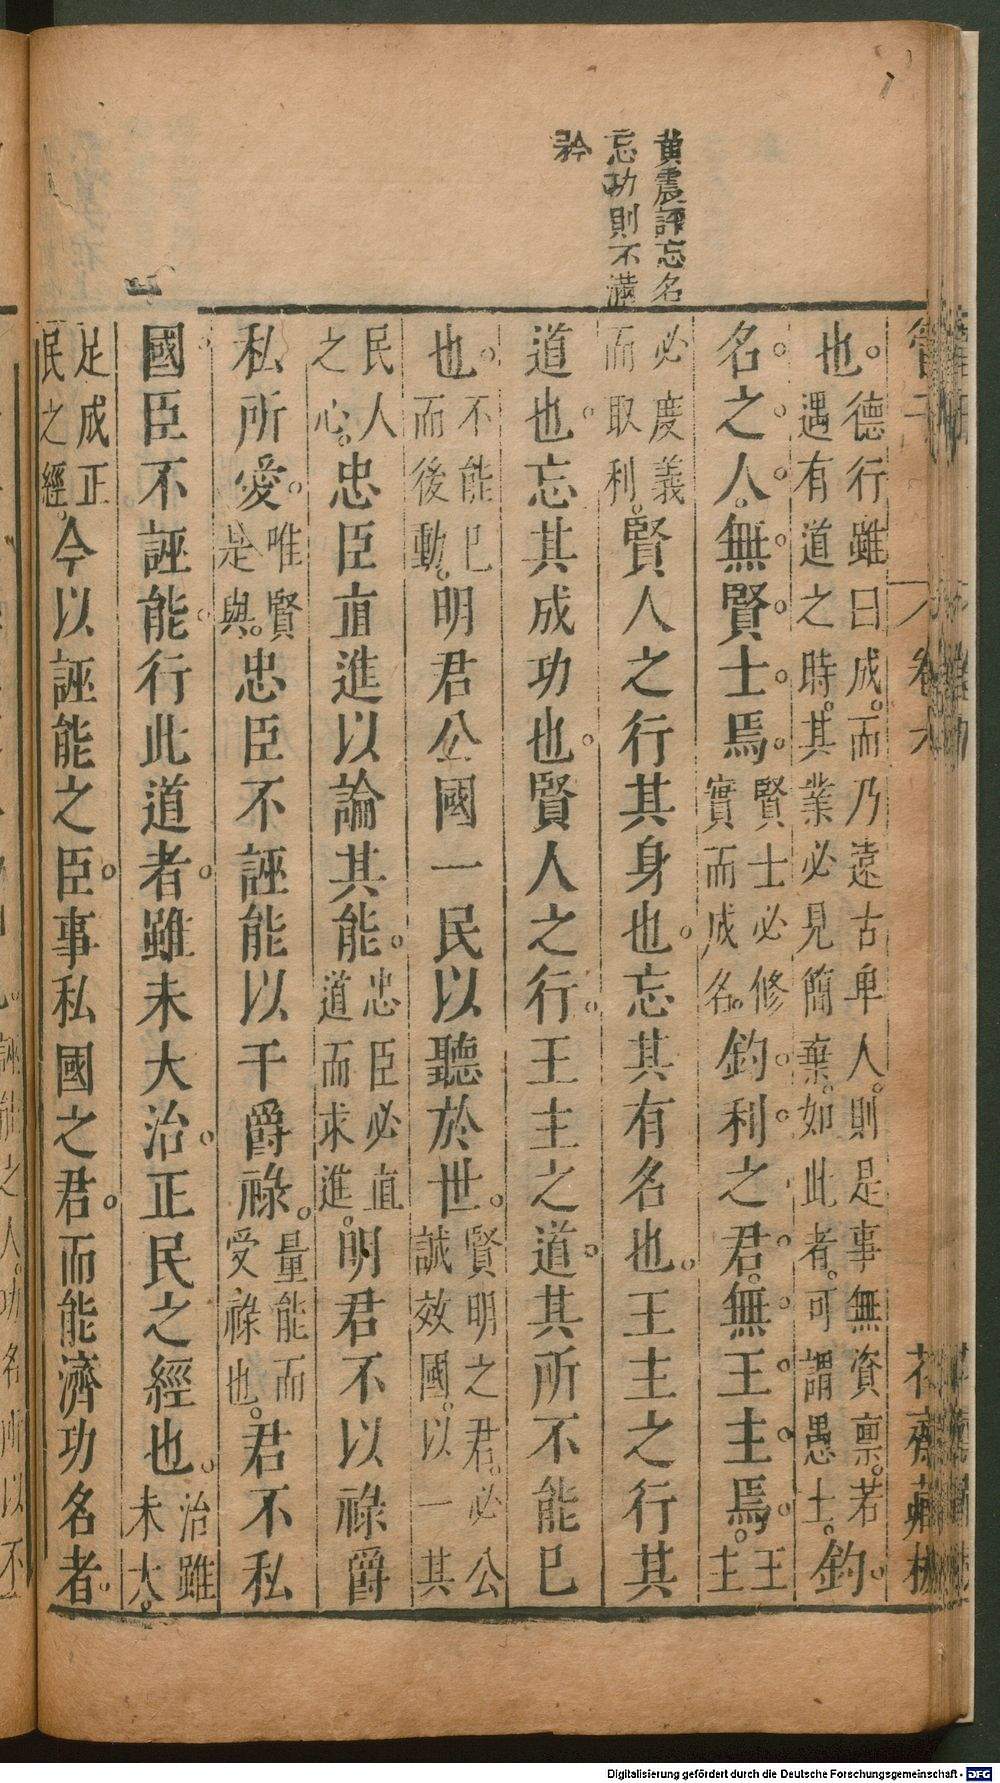 黄震評忘名
忘功則不滿
矜
管子
卷六
花齋藏板
也德行雖曰成而乃遠古卑人則是事無資禀若
遇有道之時其業必見簡棄如此者可謂愚士釣
名之人無賢士焉賢士必修
實而成名釣利之君無王主焉王
主
必度義
而取利賢人之行其身也忘其有名也王主之行其
道也忘其成功也賢人之行王主之道其所不能已
也不能已
而後動明君公國一民以聽於世賢明之君必公
誠效國以一其
民人
之心忠臣直進以論其能忠臣必直
道而求進明君不以祿爵
私所愛唯賢
是與忠臣不誣能以干爵祿量能而
受祿也君不私
國臣不誣能行此道者雖未大治正民之經也治雖
未大
足成正
民之經今以誣能之臣事私國之君而能濟功名者
誣能之人功名所以不
Digitalisierung gefördert durch die Deutsche Forschungsgemeinschaft - DFG